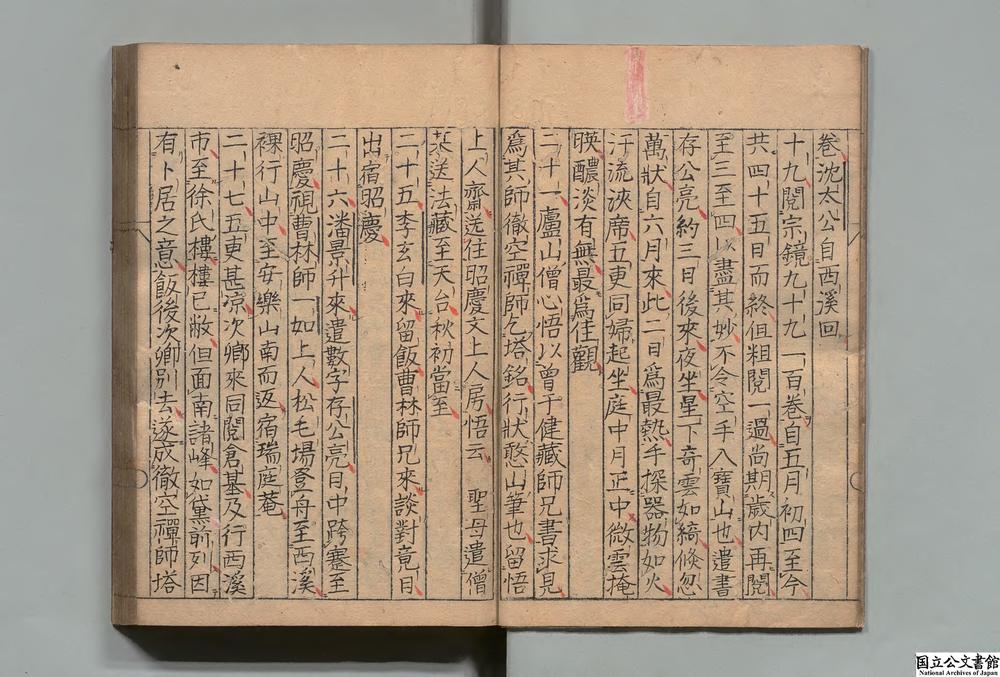 卷沈太公自西溪回
十九閱宗鏡九十九一百卷自五月初四至今
共四十五日而終但粗閱一過尚期歲内再閱
至三至四以盡其妙不令空手入寶山也遣書
存公亮約三日後來夜坐星下奇雲如綺倏忽
萬狀自六月來此二日爲最熱手探器物如火
汗流浹席五更同婦起坐庭中月正中微雲掩
暎醲淡有無最爲佳觀
二十一廬山僧心悟以曾于健藏師兄書求見
爲其師徹空禪師乞塔銘行狀憨山筆也留悟
上人齋送往昭慶文上人房悟云 聖母遣僧
□送法藏至天台秋初當至
二十五李玄白來留飯曹林師兄來談對竟日
出宿昭慶
二十六潘景升來遣數字存公亮日中跨蹇至
昭慶視曹林師一如上人松毛場登舟至西溪
裸行山中至安樂山南而返宿瑞庭菴
二十七五更甚凉次卿來同閱倉基及行西溪
市至徐氏樓樓已敝但面南諸峰如黛前列因
有卜居之意飯後次卿别去遂成徹空禪師塔
国立公文書館
National Archives of Japan